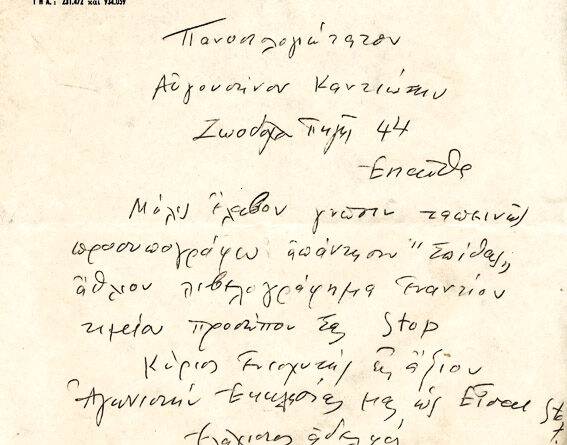 ΤΗΛ.: 231.472 καὶ 934.059
Πανοσιολογιώτατον
Αὐγουστῖνον Καντιώτην
Ζωοδόχου Πηγῆς 44
Ἐνταῦθα
Μόλις ἔλαβον γνῶσιν ταπεινῶς
προσυπογράφω ἀπάντησιν "Σπίθας"
ἄθλιον λιβελογράφημα ἐναντίον
τιμίου προσώπου σας Stop
Κύριος ἐνισχύσῃ ἄξιον
Ἀγωνιστὴν Ἐκκλησίας μας ὡς εἶσαι Stop
Ἐλάχιστος ἀδελφὸς